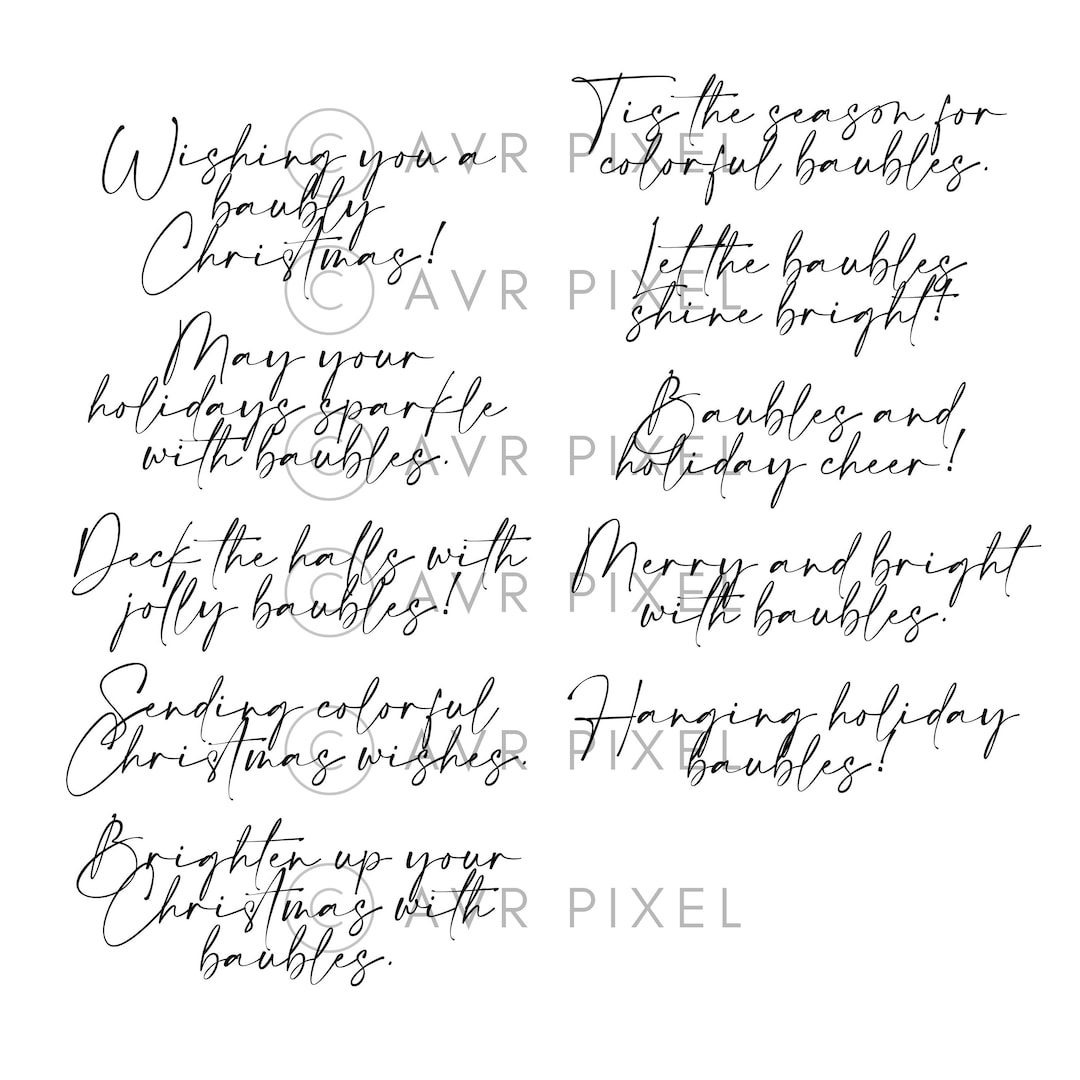 Wishing you a
baubly
Christmas!
May your
holidays sparkle
with baubles.
Deck the halls with
jolly baubles!
Sending colorful
Christmas wishes.
Brighten up your
Christmas with
baubles.
Tis the season for
colorful baubles.
Let the baubles
shine bright!
Baubles and
holiday cheer!
Merry and bright
with baubles.
Hanging holiday
baubles!
© AVR PIXEL
© AVR PIXEL
© AVR PIXEL
© AVR PIXEL
© AVR PIXEL
© AVR PIXEL